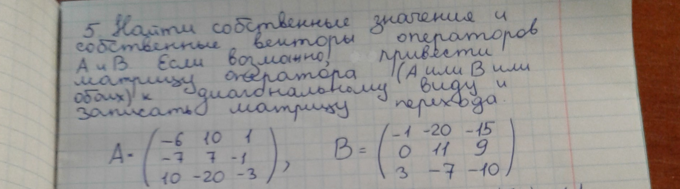 5. Найти собственные значение и
собственные векторы операторов
А и В. Если возможно, привести
матрицу оператора (А или В или
обоих) к диагональному виду и
записать матрицу перехода
A = ( -6 10 1 ), B = ( -1 -20 -15 )
( -7 7 -1 ) ( 0 11 9 )
( 10 -20 -3 ) ( 3 -7 -10 )